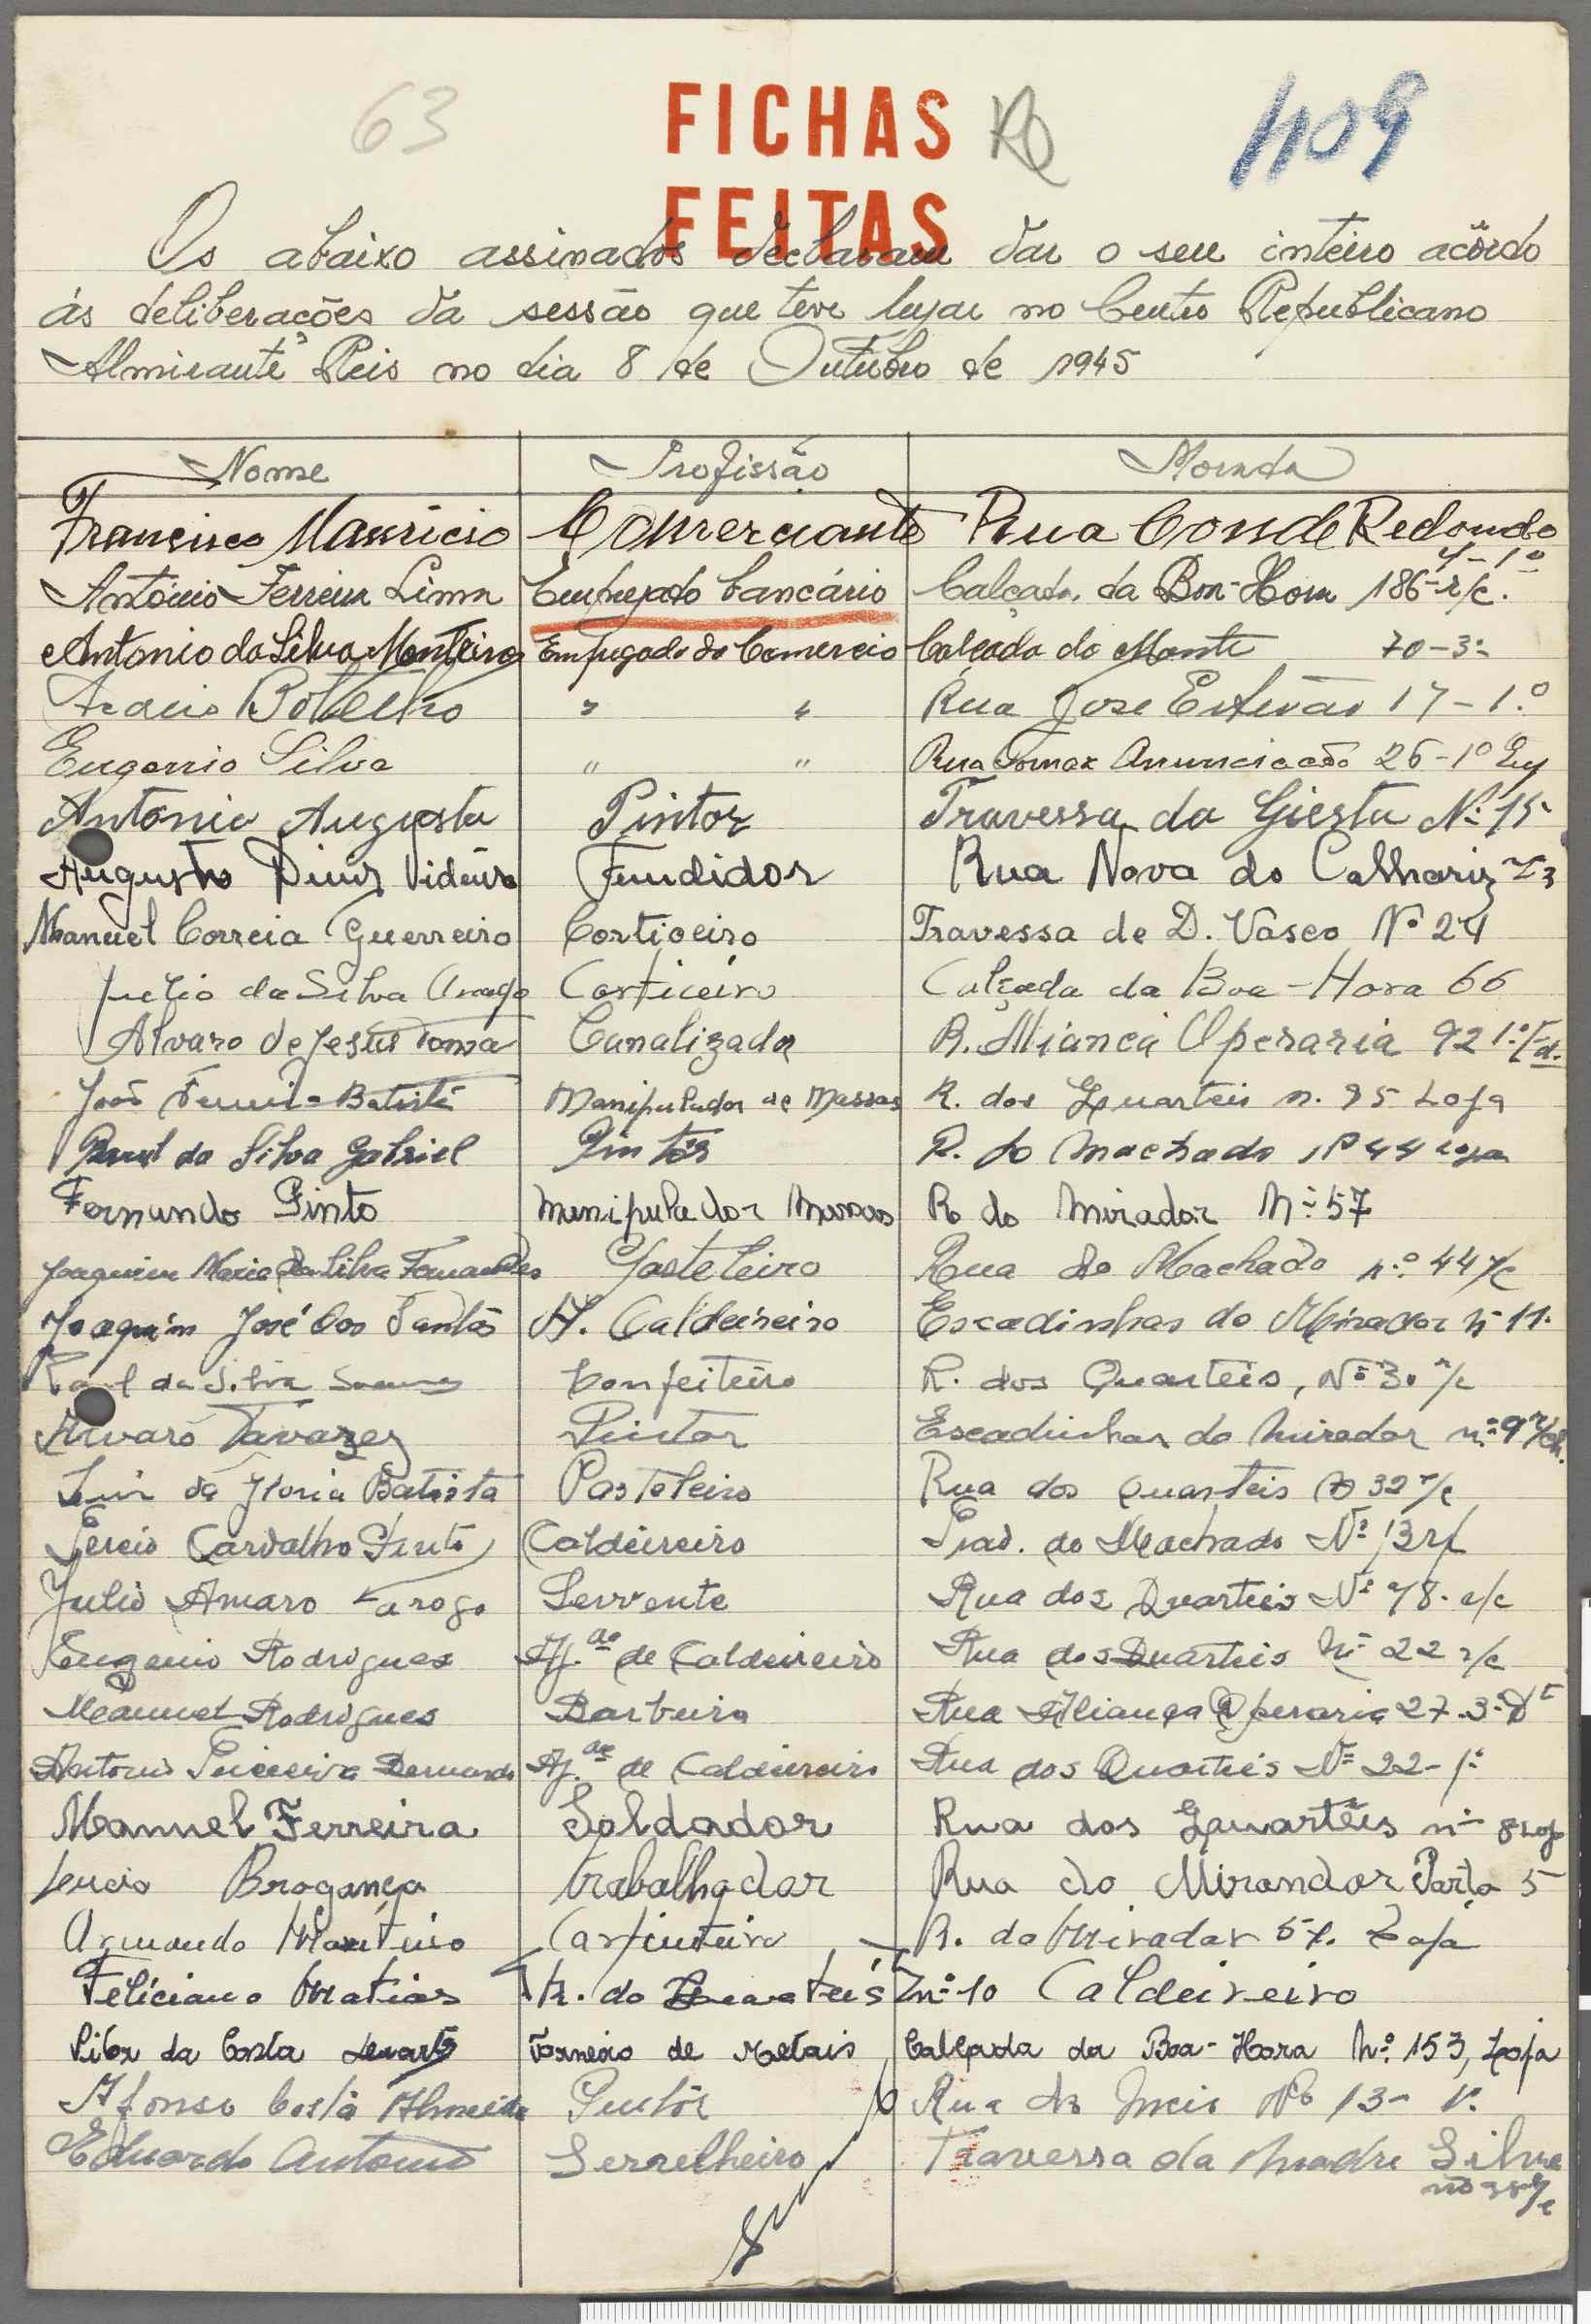 63
FICHAS
FEITAS
1109
Os abaixo assinados declaram dar o seu inteiro acôrdo
ás deliberações da sessão que teve lugar no Centro Republicano
Almirante Reis no dia 8 de Outubro de 1945
Nome Profissão Morada
Francisco Mauricio Comerciante Rua Conde Redondo
4-1º
António Ferreira Lima Empregado bancário Calçada da Boa-Hora 186-r/c.
Antonio da Silva Monteiro Empregado do Comercio Calçada do Monte 70-3º
Acacio Botelho " " Rua José Estevão 17-1.º
Eugenio Silva " " Rua Tomaz Anunciacão 26-1º Esq
António Augusto Pintor Travessa da Giesta Nº 15
Augusto Diniz Videira Fundidor Rua Nova do Calhariz 23
Manuel Correia Guerreiro Corticeiro Travessa de D. Vasco Nº 24
Julio da Silva Corticeiro Calçada da Boa-Hora 66
Alvaro de Jesus Canalizador R. Aliança Operaria 92 1.º
João Batista Manipulador de Massas R. dos Quarteis n. 95 Loja
da Silva Gabriel Pintôr R. do Machado nº 44 loja
Fernando Pinto Manipulador Massas R. do Mirador Nº 57
Joaquim Maria da Silva Fernandes Pasteleiro Rua do Machado n.º 44 r/c
Joaquim José dos Santos Aj. Caldeireiro Escadinhas do Mirador nº 11.
Raul da Silva Confeiteiro R. dos Quarteis, Nº 30 r/c
Alvaro Tavares Pintor Escadinhas do Mirador n.º 9 r/ch.
da Gloria Batista Pasteleiro Rua dos Quarteis 32 r/c
Carvalho Caldeireiro Trav. do Machado Nº 13 r/c
Julio Amaro Servente Rua dos Quarteis Nº 78. r/c
Eugenio Rodrigues Aj.ᵗᵉ de Caldeireiro Rua dos Quarteis Nº 22 r/c
Manuel Rodrigues Barbeiro Rua Aliança Operaria 27.3º Dt
Antonio Teixeira Aj.ᵗᵉ de Caldeireiro Rua dos Quarteis Nº 22-1º
Manuel Ferreira Soldador Rua dos Quarteis nº 8 Loja
Lucio Bragança trabalhador Rua do Mirandor Porta 5
Armando Martinho Carpinteiro R. do Mirador 57. Loja
Feliciano Matias R. do Quarteis nº 10 Caldeireiro
da Costa Duarte Torneiro de Metais Calçada da Boa-Hora Nº 153, Loja
Afonso Costa Almeida Pintôr Rua Nº 13- 1º.
Eduardo Antonio Serrelheiro Travessa da Madre Silva